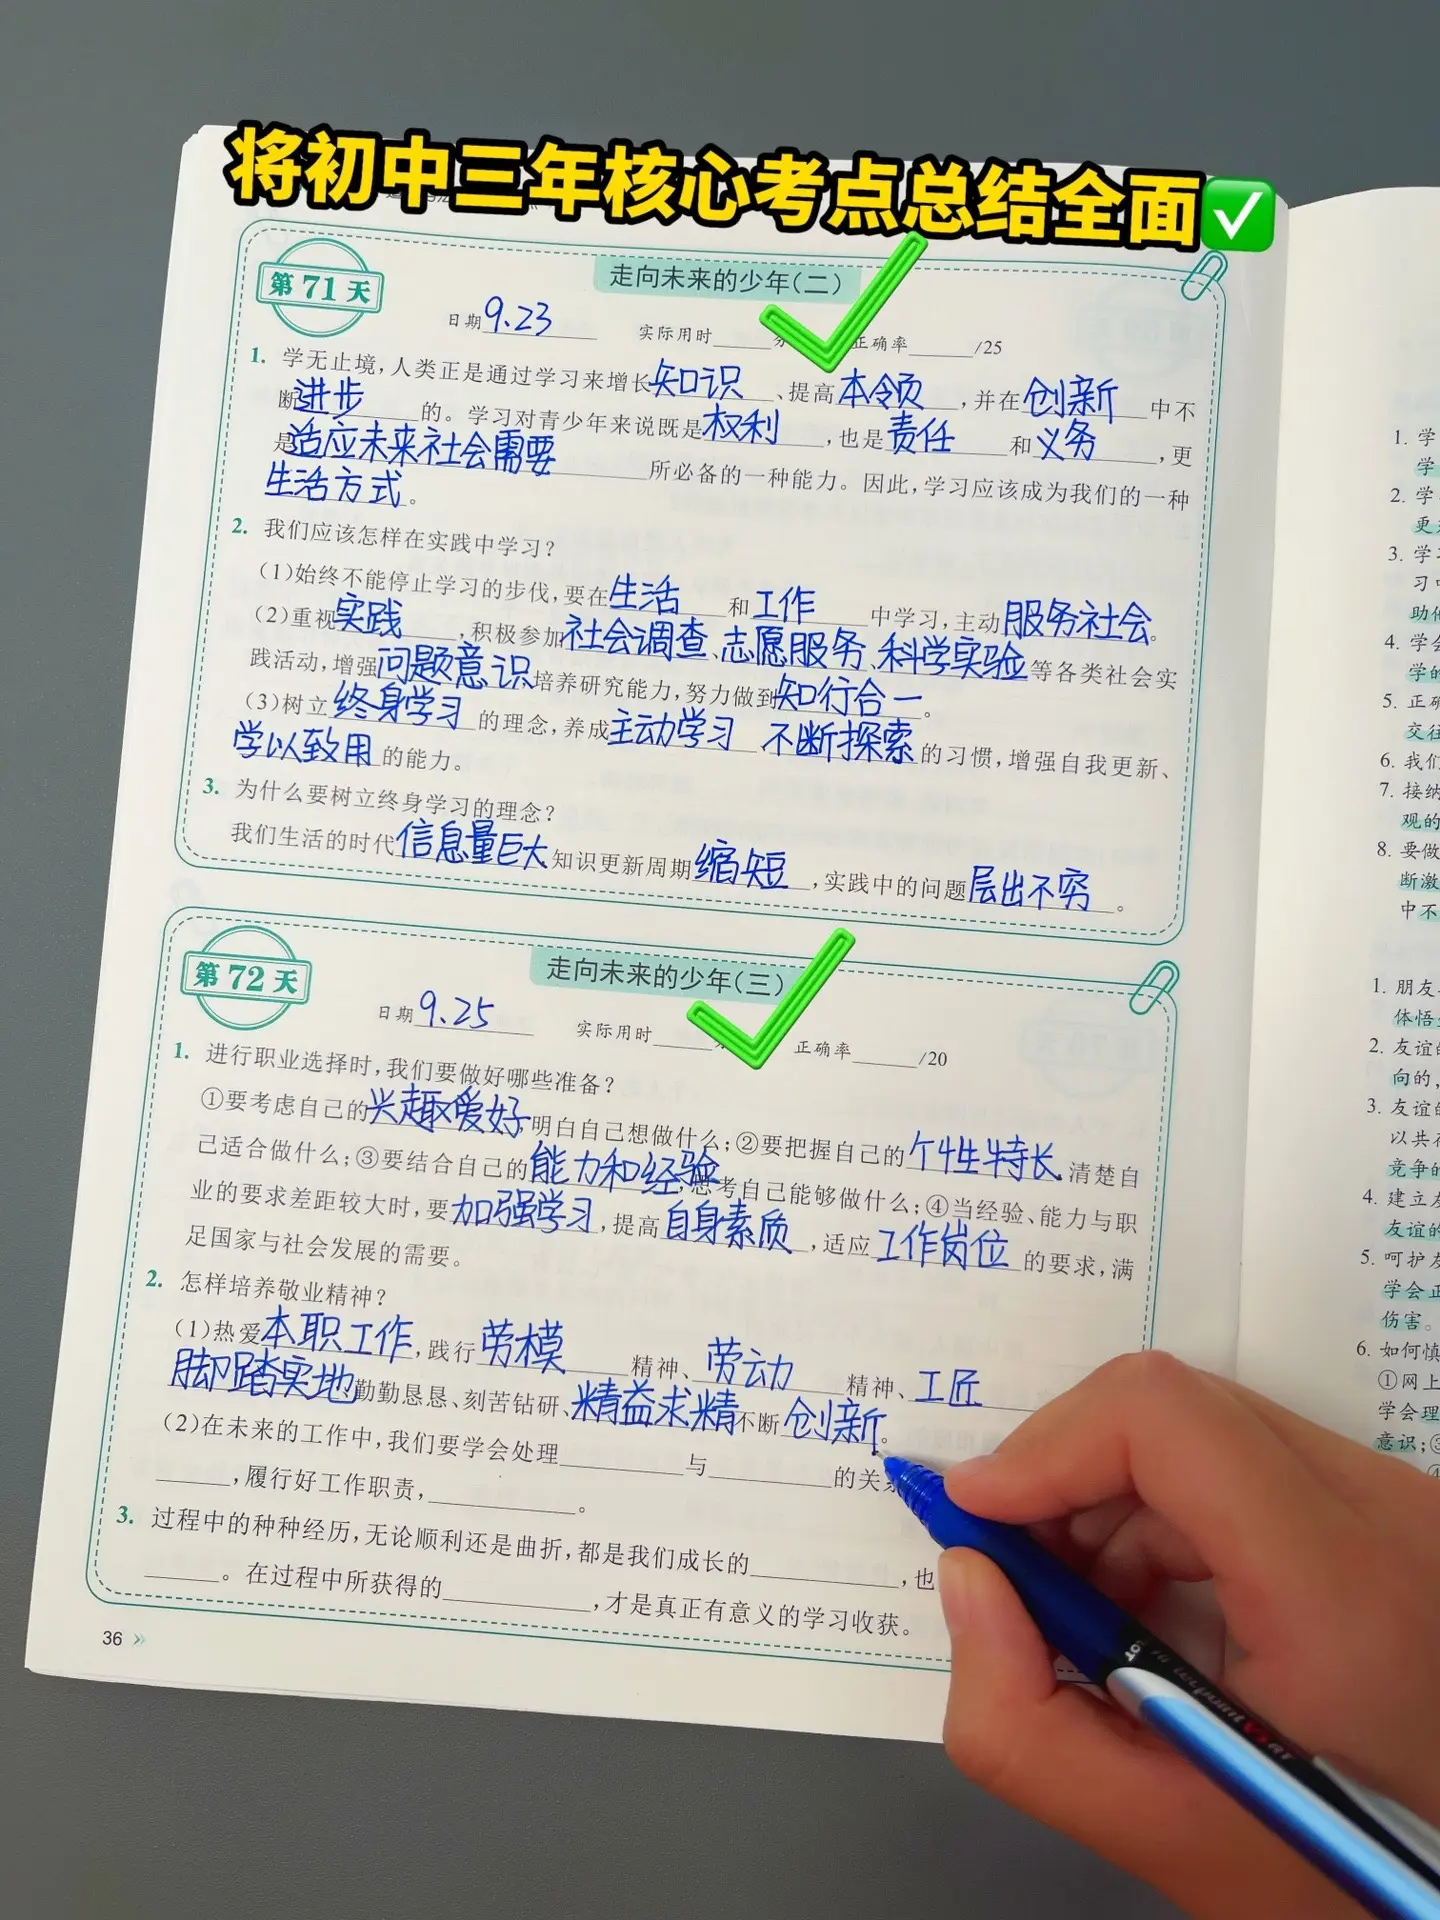 将初中三年核心考点总结全面✅
第71天
走向未来的少年(二)
日期9.23 实际用时 正确率 /25
1. 学无止境,人类正是通过学习来增长知识、提高本领,并在创新中不
断进步的。学习对青少年来说既是权利,也是责任和义务,更
是适应未来社会需要所必备的一种能力。因此,学习应该成为我们的一种
生活方式。
2. 我们应该怎样在实践中学习?
(1)始终不能停止学习的步伐,要在生活和工作中学习,主动服务社会。
(2)重视实践,积极参加社会调查、志愿服务、科学实验等各类社会实
践活动,增强问题意识培养研究能力,努力做到知行合一。
(3)树立终身学习的理念,养成主动学习 不断探索的习惯,增强自我更新、
学以致用的能力。
3. 为什么要树立终身学习的理念?
我们生活的时代信息量巨大知识更新周期缩短,实践中的问题层出不穷。
第72天
走向未来的少年(三)
日期9.25 实际用时 正确率 /20
1. 进行职业选择时,我们要做好哪些准备?
①要考虑自己的兴趣爱好明白自己想做什么;②要把握自己的个性特长清楚自
己适合做什么;③要结合自己的能力和经验,思考自己能够做什么;④当经验、能力与职
业的要求差距较大时,要加强学习,提高自身素质,适应工作岗位的要求,满
足国家与社会发展的需要。
2. 怎样培养敬业精神?
(1)热爱本职工作,践行劳模精神、劳动精神、工匠
脚踏实地勤勤恳恳、刻苦钻研、精益求精不断创新。
(2)在未来的工作中,我们要学会处理 与 的关系
,履行好工作职责, 。
3. 过程中的种种经历,无论顺利还是曲折,都是我们成长的 ,也
。在过程中所获得的 ,才是真正有意义的学习收获。
36
1. 学
学
2. 学
更
3. 学习
习
助他
4. 学会
学的
5. 正确
交往
6. 我们
7. 接纳
观的
8. 要做
断激
中不
1. 朋友
体悟
2. 友谊
向的,
3. 友谊的
以共
竞争的
4. 建立友
友谊的
5. 呵护友
学会正
伤害。
6. 如何慎
①网上
学会理
意识;③